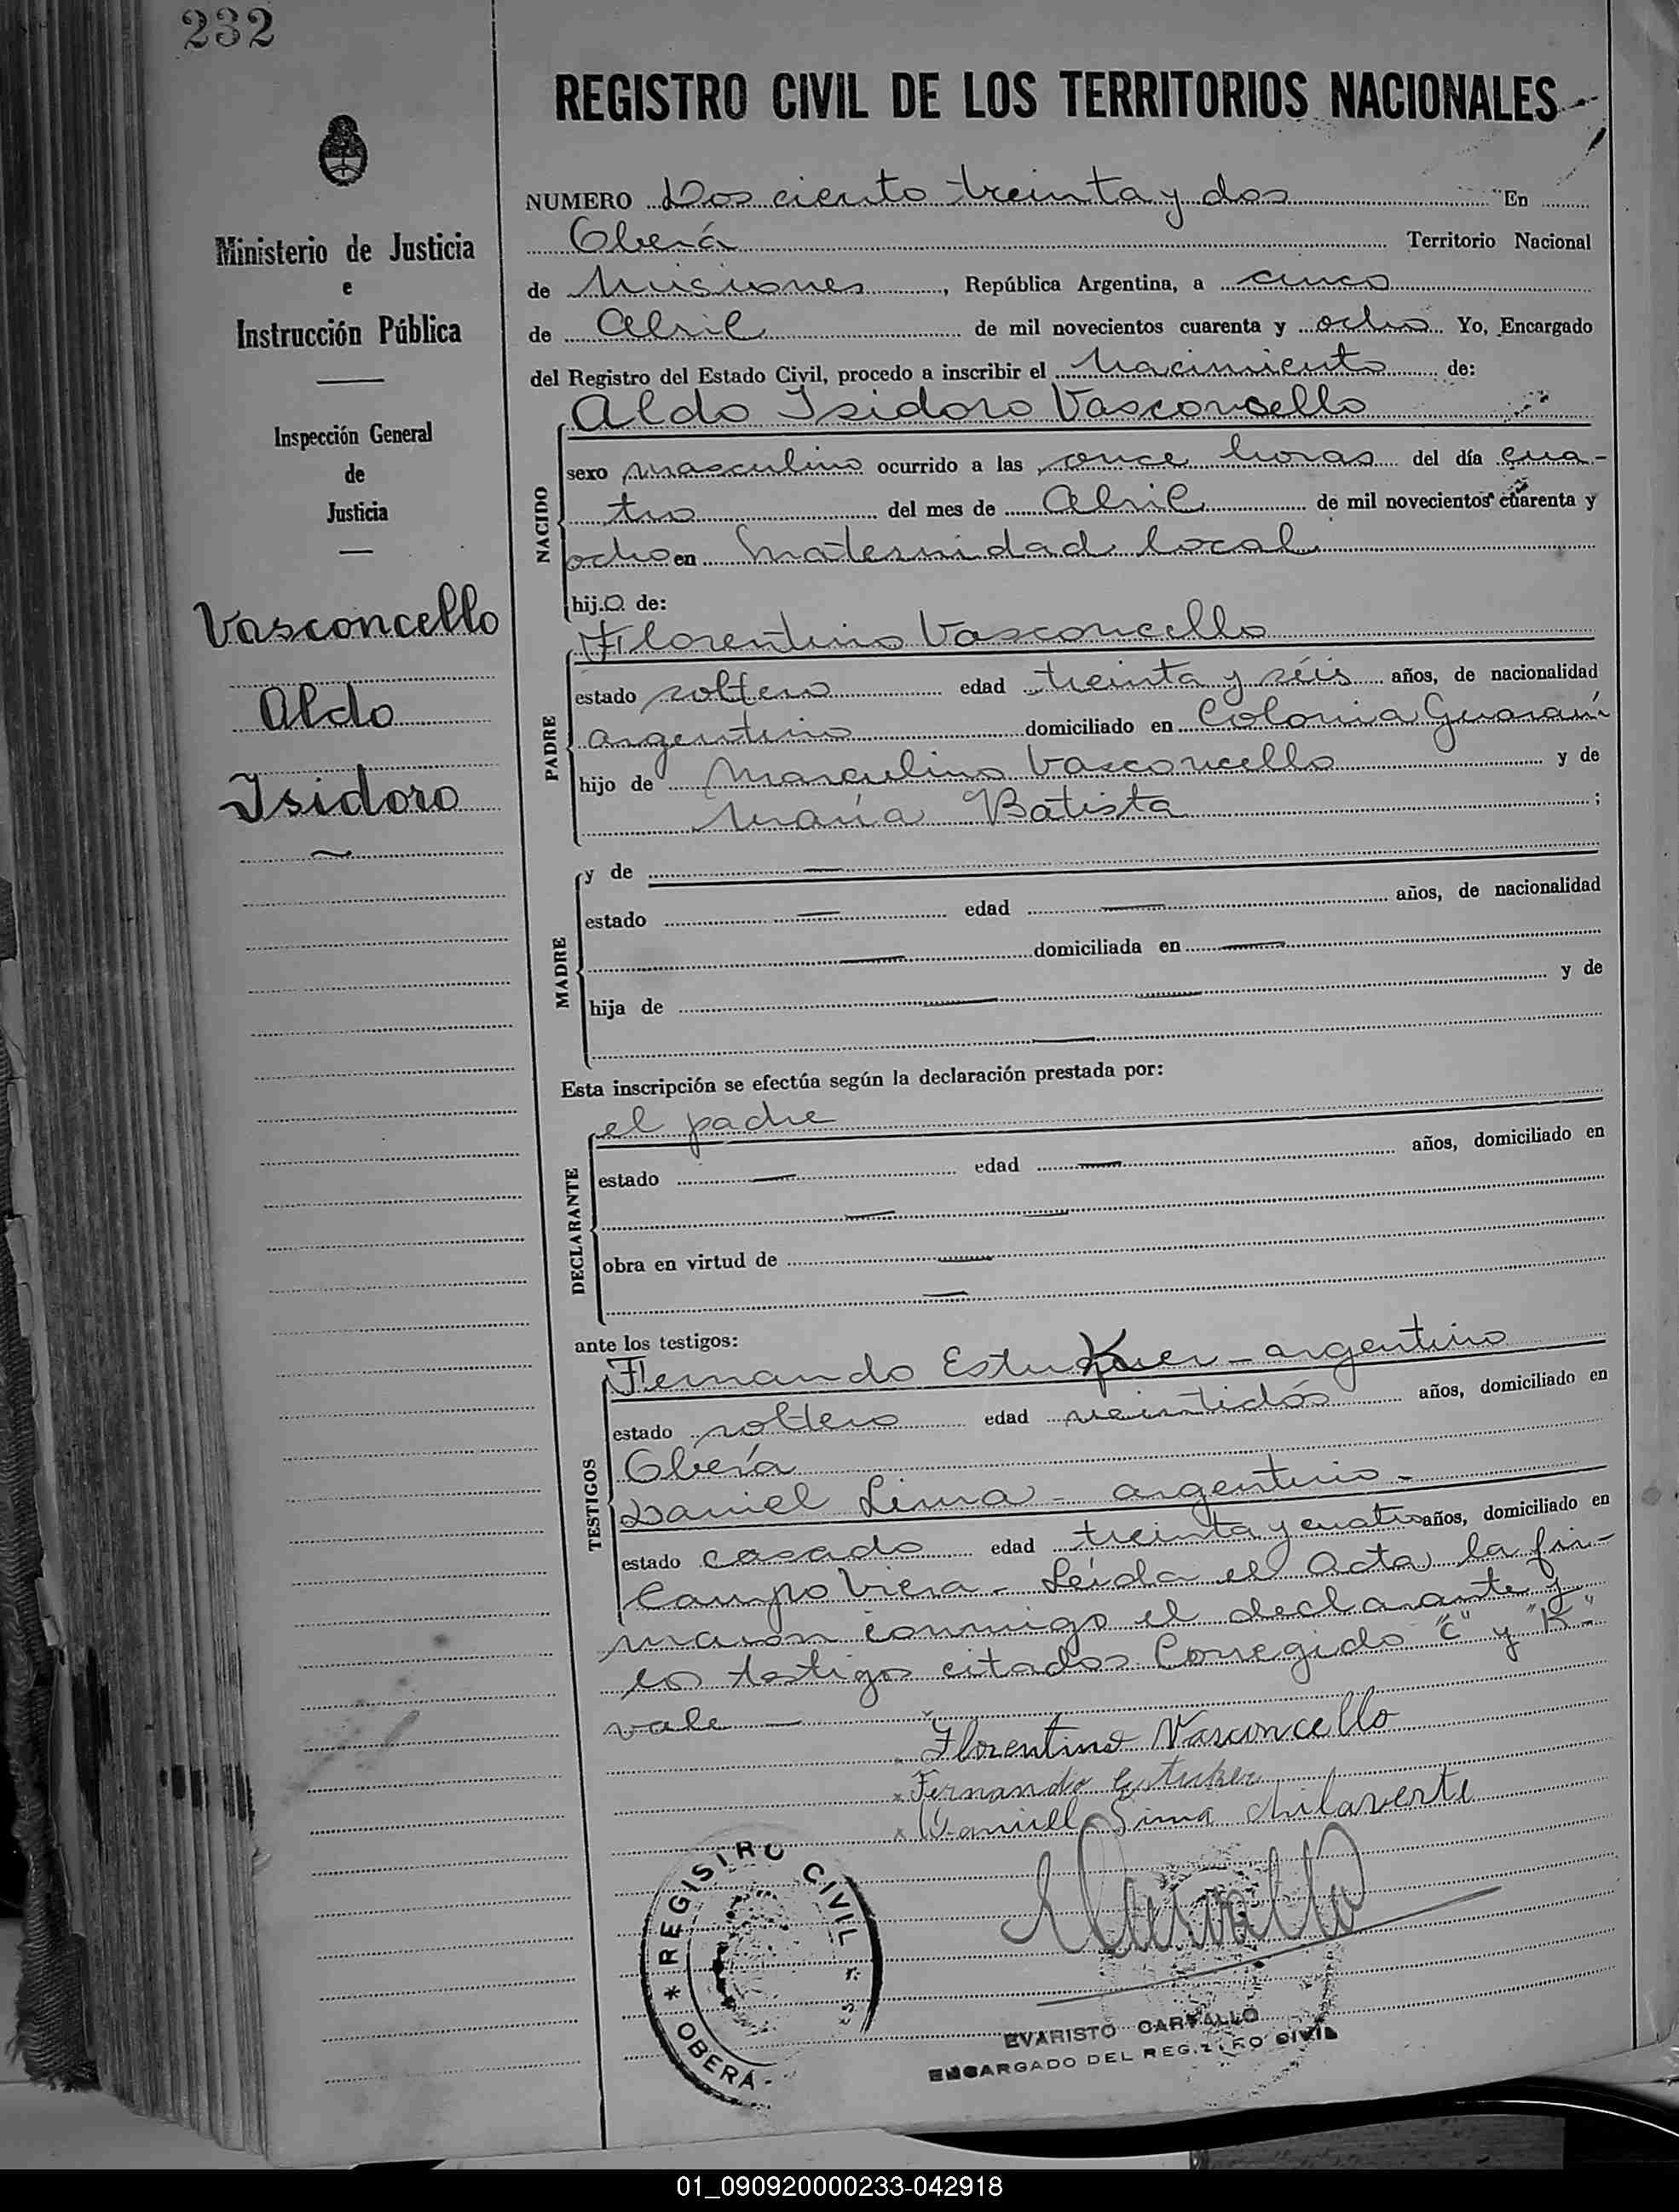 232
REGISTRO CIVIL DE LOS TERRITORIOS NACIONALES
Ministerio de Justicia
e
Instrucción Pública
Inspección General
de
Justicia
Vasconcello
Aldo
Isidoro
NUMERO Dos ciento treinta y dos En
Oberá Territorio Nacional
de Misiones, República Argentina, a cinco
de Abril de mil novecientos cuarenta y ocho Yo, Encargado
del Registro del Estado Civil, procedo a inscribir el Nacimiento de:
Aldo Isidoro Vasconcello
NACIDO
sexo masculino ocurrido a las once horas del día cua-
tro del mes de Abril de mil novecientos cuarenta y
ocho en Maternidad local
hijo de:
PADRE
Florentino Vasconcello
estado soltero edad treinta y séis años, de nacionalidad
argentino domiciliado en Colonia Guaraní
hijo de Masculino Vasconcello y de
María Batista ;
MADRE
y de —
estado — edad — años, de nacionalidad
— domiciliada en —
hija de — — y de
—
Esta inscripción se efectúa según la declaración prestada por:
DECLARANTE
el padre
estado — edad — años, domiciliado en
— —
obra en virtud de —
—
ante los testigos:
TESTIGOS
Fernando Estuker - argentino
estado soltero edad veintidós años, domiciliado en
Oberá
Daniel Lima - argentino -
estado casado edad treinta y cuatro años, domiciliado en
Campo Viera - Leída el Acta, la fir-
maron conmigo el declarante y
los testigos citados. Corregido "c" y "K"
vale —
Florentino Vasconcello
Fernando Estuker
Daniel Lima chilaverte
* REGISTRO CIVIL *
OBERÁ
EVARISTO CARVALLO
ENCARGADO DEL REGISTRO CIVIL
01_090920000233-042918